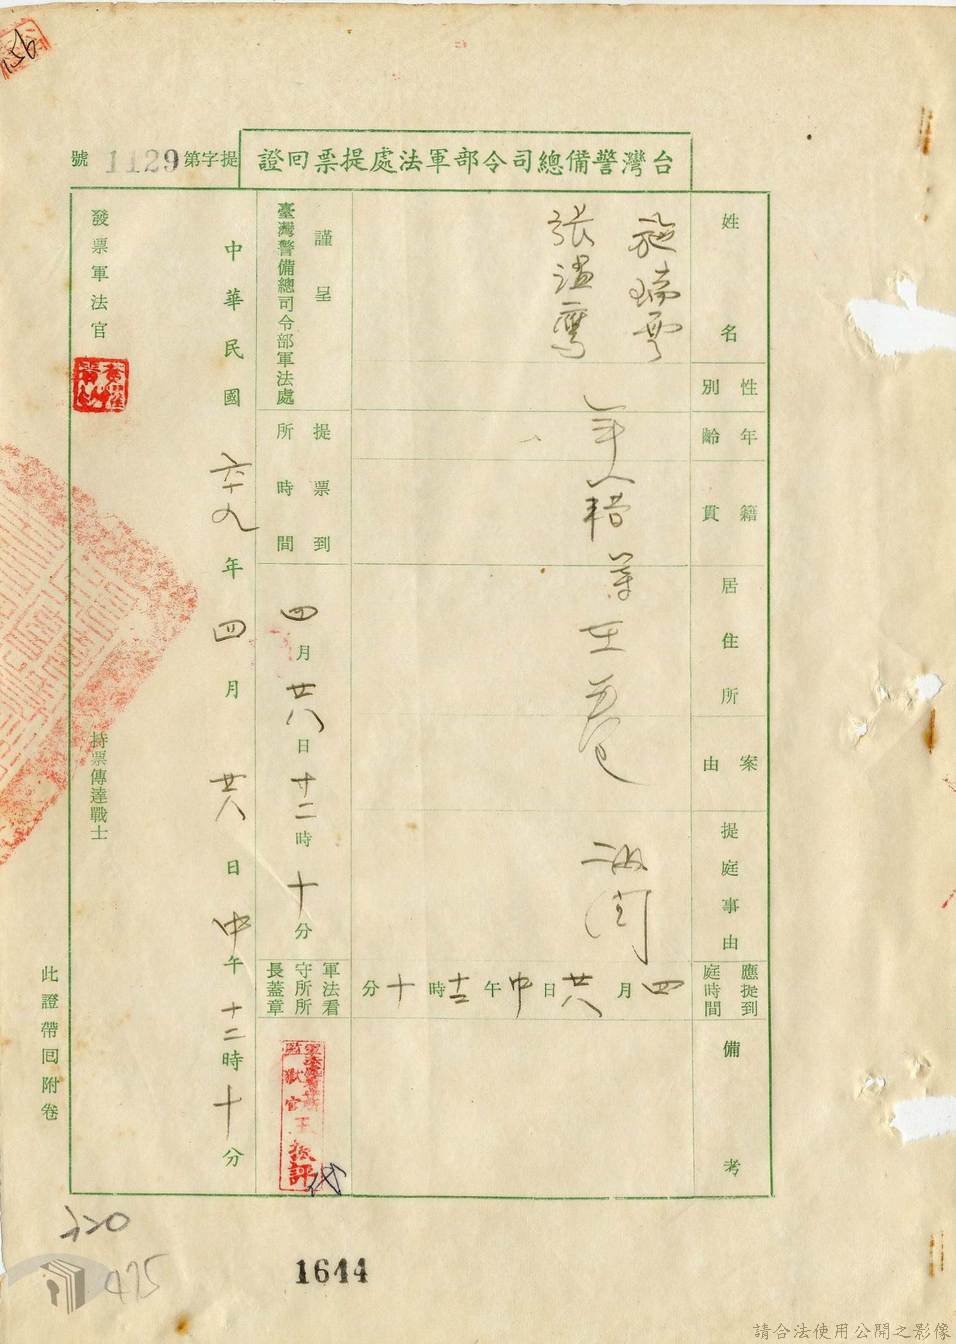 台灣警備總司令部軍法處提票回證
提字第1129號
姓名
施瑞雲
張溫鷹
性別
年齡
籍貫
年籍等在卷
居住所
案由
提庭事由
訊問
應提到庭時間
四月廿八日中午十二時十分
備考
謹呈
臺灣警備總司令部軍法處
提票到所時間
四月廿八日十二時十分
軍法看守所所長蓋章
中華民國六十九年四月廿八日中午十二時十分
發票軍法官
持票傳達戰士
此證帶回附卷
1644
請合法使用公開之影像